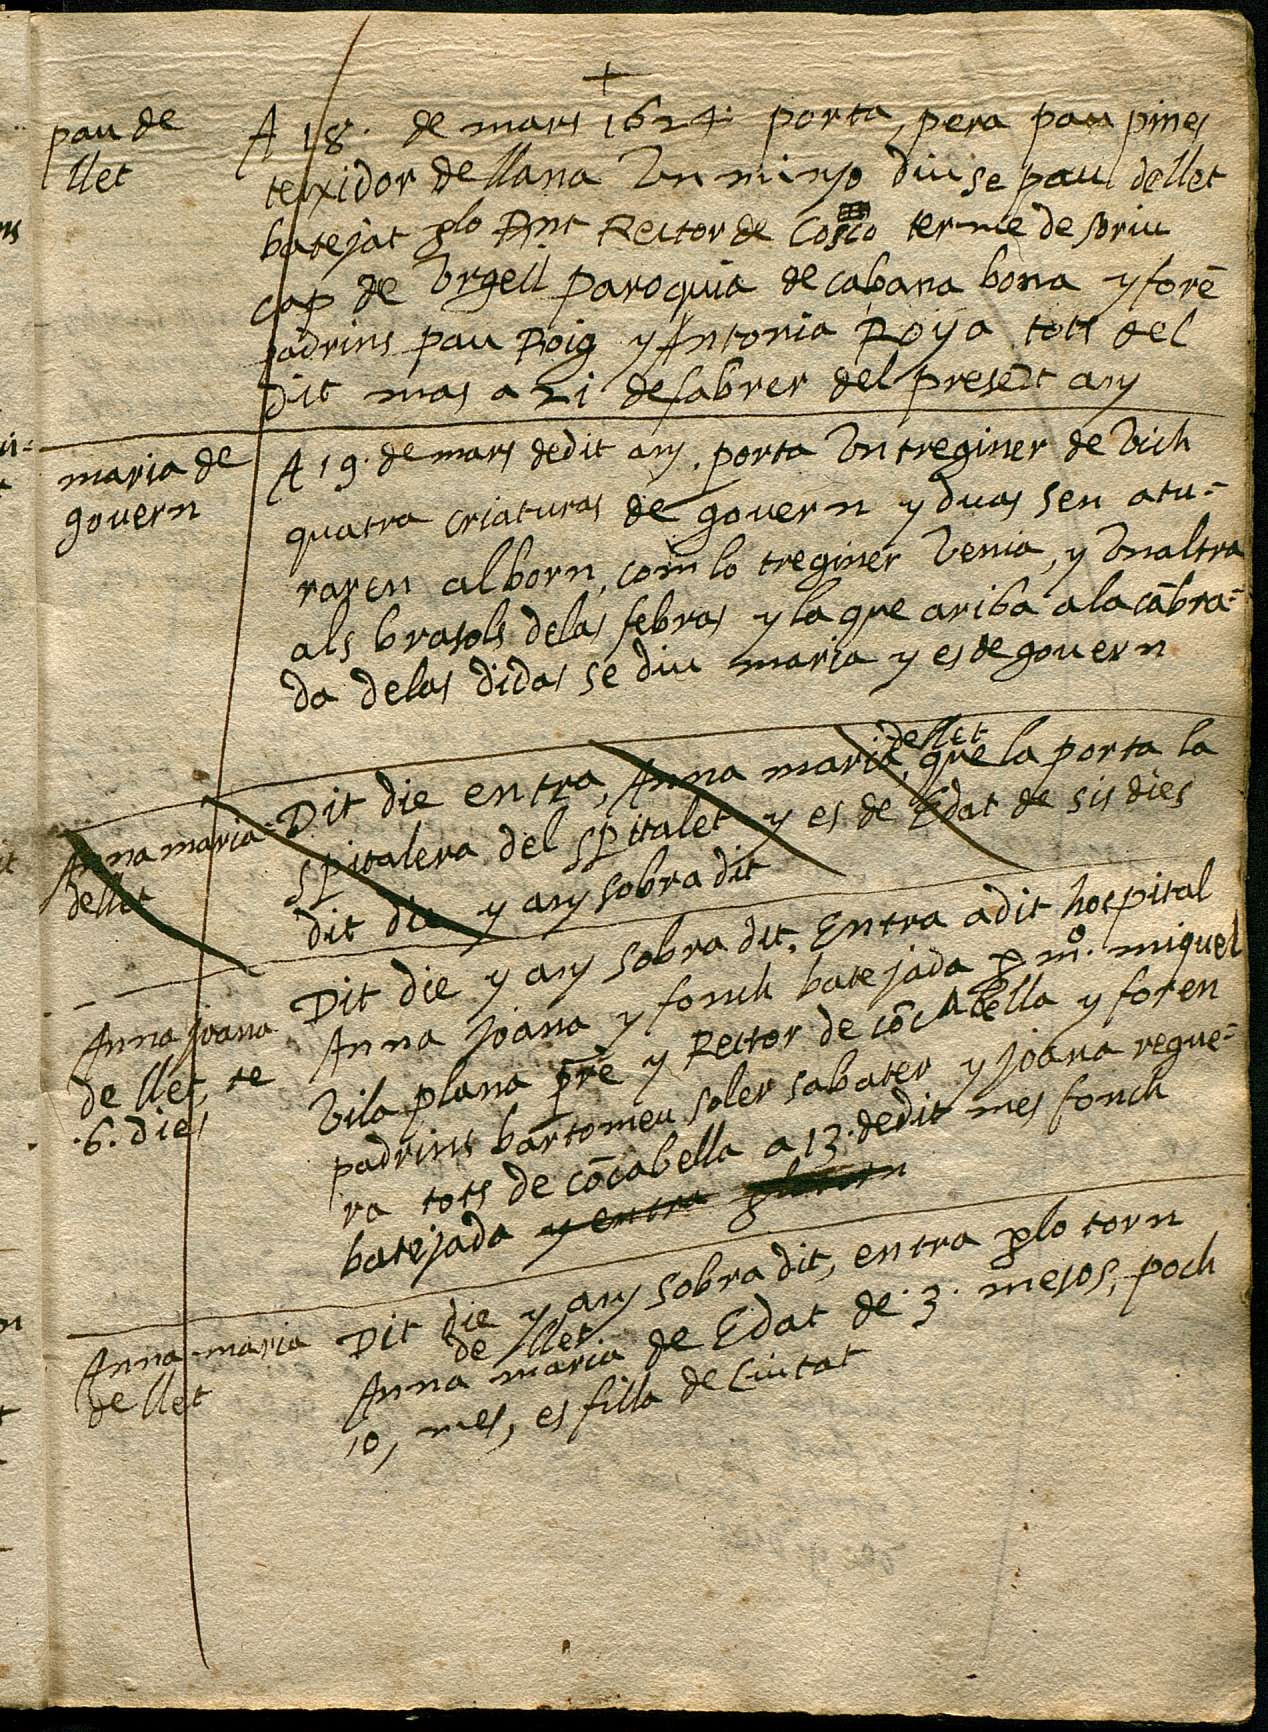 +
pau de
llet
A 18. de mars 1624 porta, pera pau pines
teixidor de llana Un minyo diu se pau de llet
batejat plo Rnt Rector de Cosco terme de soriu
cap de Urgell paroquia de cabana bona y forē
padrins pau Roig y Antonia Roya tots del
dit mas a 21 de fabrer del presēt any
maria de
govern
A 19. de mars de dit any. porta Un treginer de Vich
quatra criaturas de govern y duas sen atu-
raren al born, com lo treginer Venia, y Unaltra
als brasols de las febras y la que ariba a la cābra-
da de las didas se diu maria y es de govern
Anna maria
de llet
Dit die entra, Anna maria de llet, que la porta la
spitalera del spitalet y es de Edat de sis dies
dit die y any sobra dit
Anna Joana
de llet, te
.6. dies
Dit die y any sobra dit, Entra a dit hospital
Anna Joana y fonch batejada p mº. miquel
Vila plana prē y Rector de cōcabella y foren
padrins bartomeu soler sabater y Joana regue-
ra tots de cōcabella a 13. de dit mes fonch
batejada y entra plo torn
Anna maria
de llet
Dit die y any sobra dit, entra plo torn
Anna maria de llet de Edat de .3. mesos, poch
10, mes, es filla de Ciutat